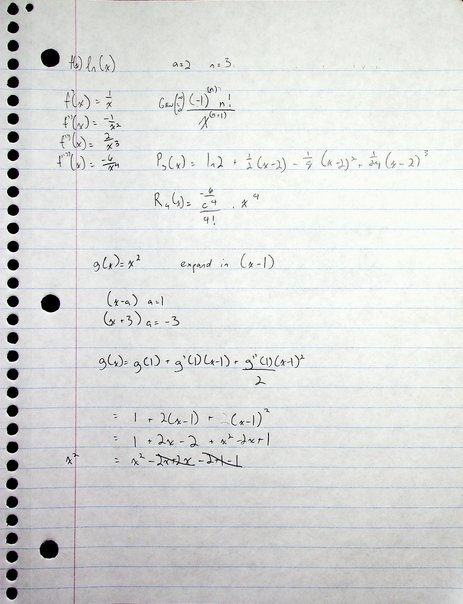 f(x) ln(x) a=2 n=3
f'(x) = 1/x Gen (-1)^(n) n! / x^(n+1)
f''(x) = -1/x²
f'''(x) = 2/x³
f''''(x) = -6/x⁴ P₃(x) = ln2 + 1/2(x-2) - 1/8(x-2)² + 1/24(x-2)³
R₄(x) = -6/c⁴ / 4! · x⁴
g(x) = x² expand in (x-1)
(x-a) a=1
(x+3) a=-3
g(x) = g(1) + g'(1)(x-1) + g''(1)(x-1)² / 2
= 1 + 2(x-1) + (x-1)²
= 1 + 2x - 2 + x² - 2x + 1
x² = x² - 2x+2x - 2+1-1